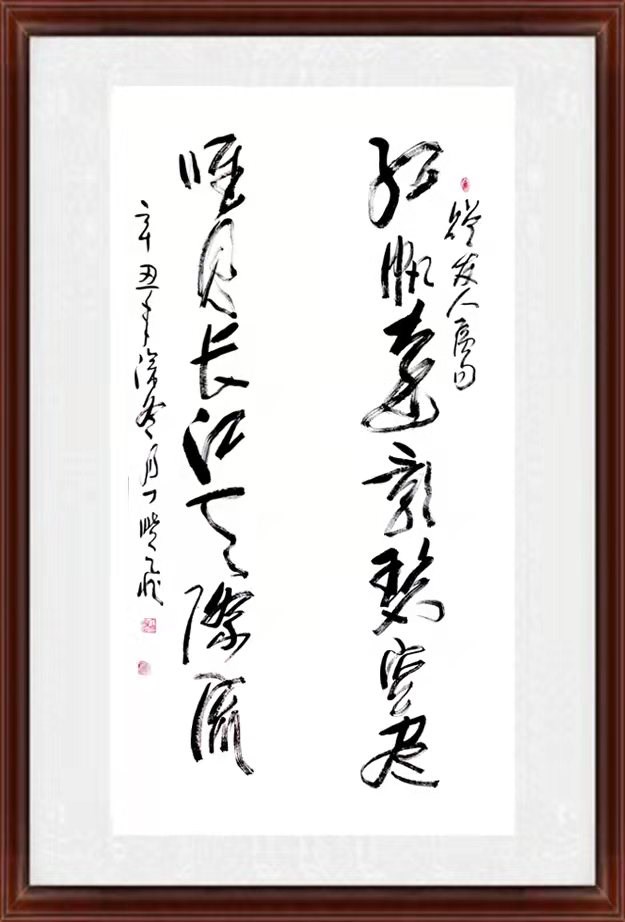 人句
孤帆远影碧空尽
唯见长江天際流
辛丑年冬月丁